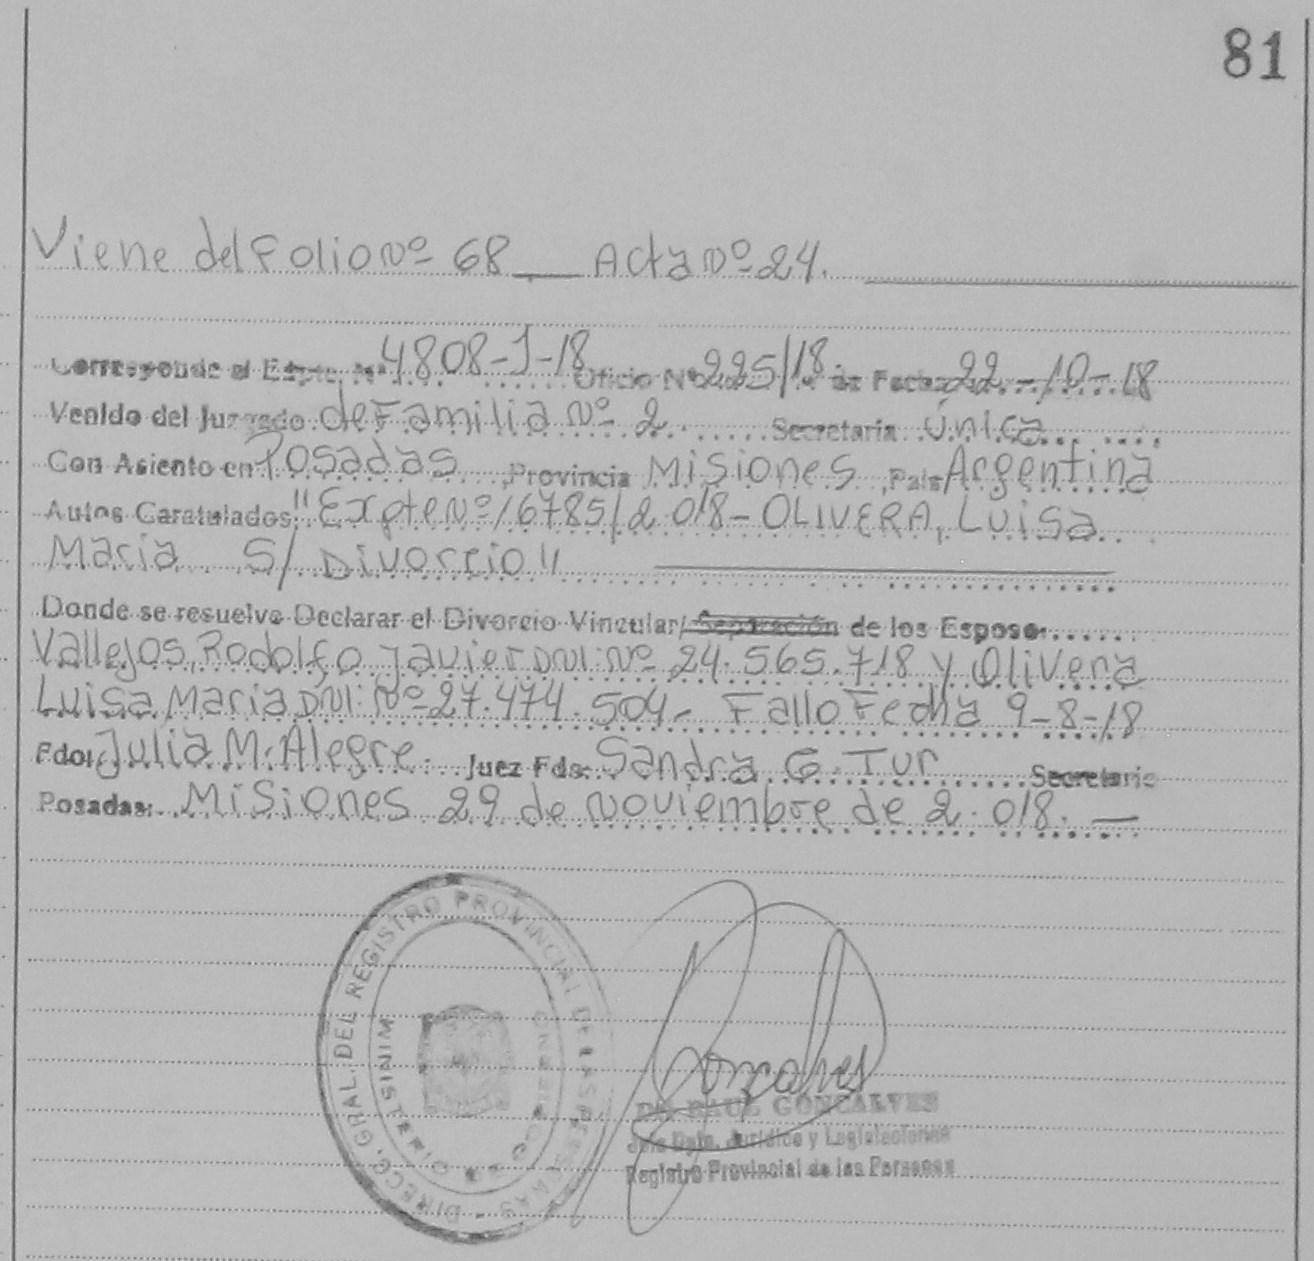 81
Viene del Folio Nº 68 __ Acta Nº 24.
Corresponde al Expte. Nº 4808-J-18 Oficio Nº 225/18 de Fecha 22-10-18
Venido del Juzgado de Familia Nº 2 Secretaria Única
Con Asiento en Posadas, Provincia Misiones, Pais Argentina
Autos Caratulados, "Expte Nº 16785/2.018 - OLIVERA, Luisa
Maria S/ Divorcio"
Donde se resuelve Declarar el Divorcio Vincular/ Separación de los Esposos
Vallejos, Rodolfo Javier DNI: Nº 24.565.718 y Olivera
Luisa Maria DNI: Nº 27.474.504 - Fallo Fecha 9-8-18
Fdo: Julia M. Alegre. Juez Fdo: Sandra G. Tur Secretario
Posadas: Misiones 29 de Noviembre de 2.018. —
DIRECC. GRAL. DEL REGISTRO PROVINCIAL DE LAS PERSONAS
MINISTERIO DE GOBIERNO
Goncalves
Dr. RAUL GONCALVES
Jefe Dpto. Jurídico y Legislaciones
Registro Provincial de las Personas